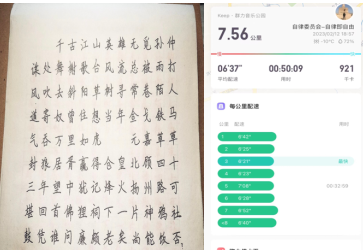 千古江山英雄无觅孙仲
谋处舞榭歌台风流总被雨打
风吹去斜阳草树寻常巷陌人
道寄奴曾住想当年金戈铁马
气吞万里如虎 元嘉草草
封狼居胥赢得仓皇北顾四十
三年望中犹记烽火扬州路可
堪回首佛狸祠下一片神鸦社
鼓凭谁问廉颇老矣尚能饭否
7.56 公里
自律委员会-自律即自由
06'37" 00:50:09 921
平均配速 用时 千卡
每公里配速
公里 配速 用时
1
2
3
4
5
6
7